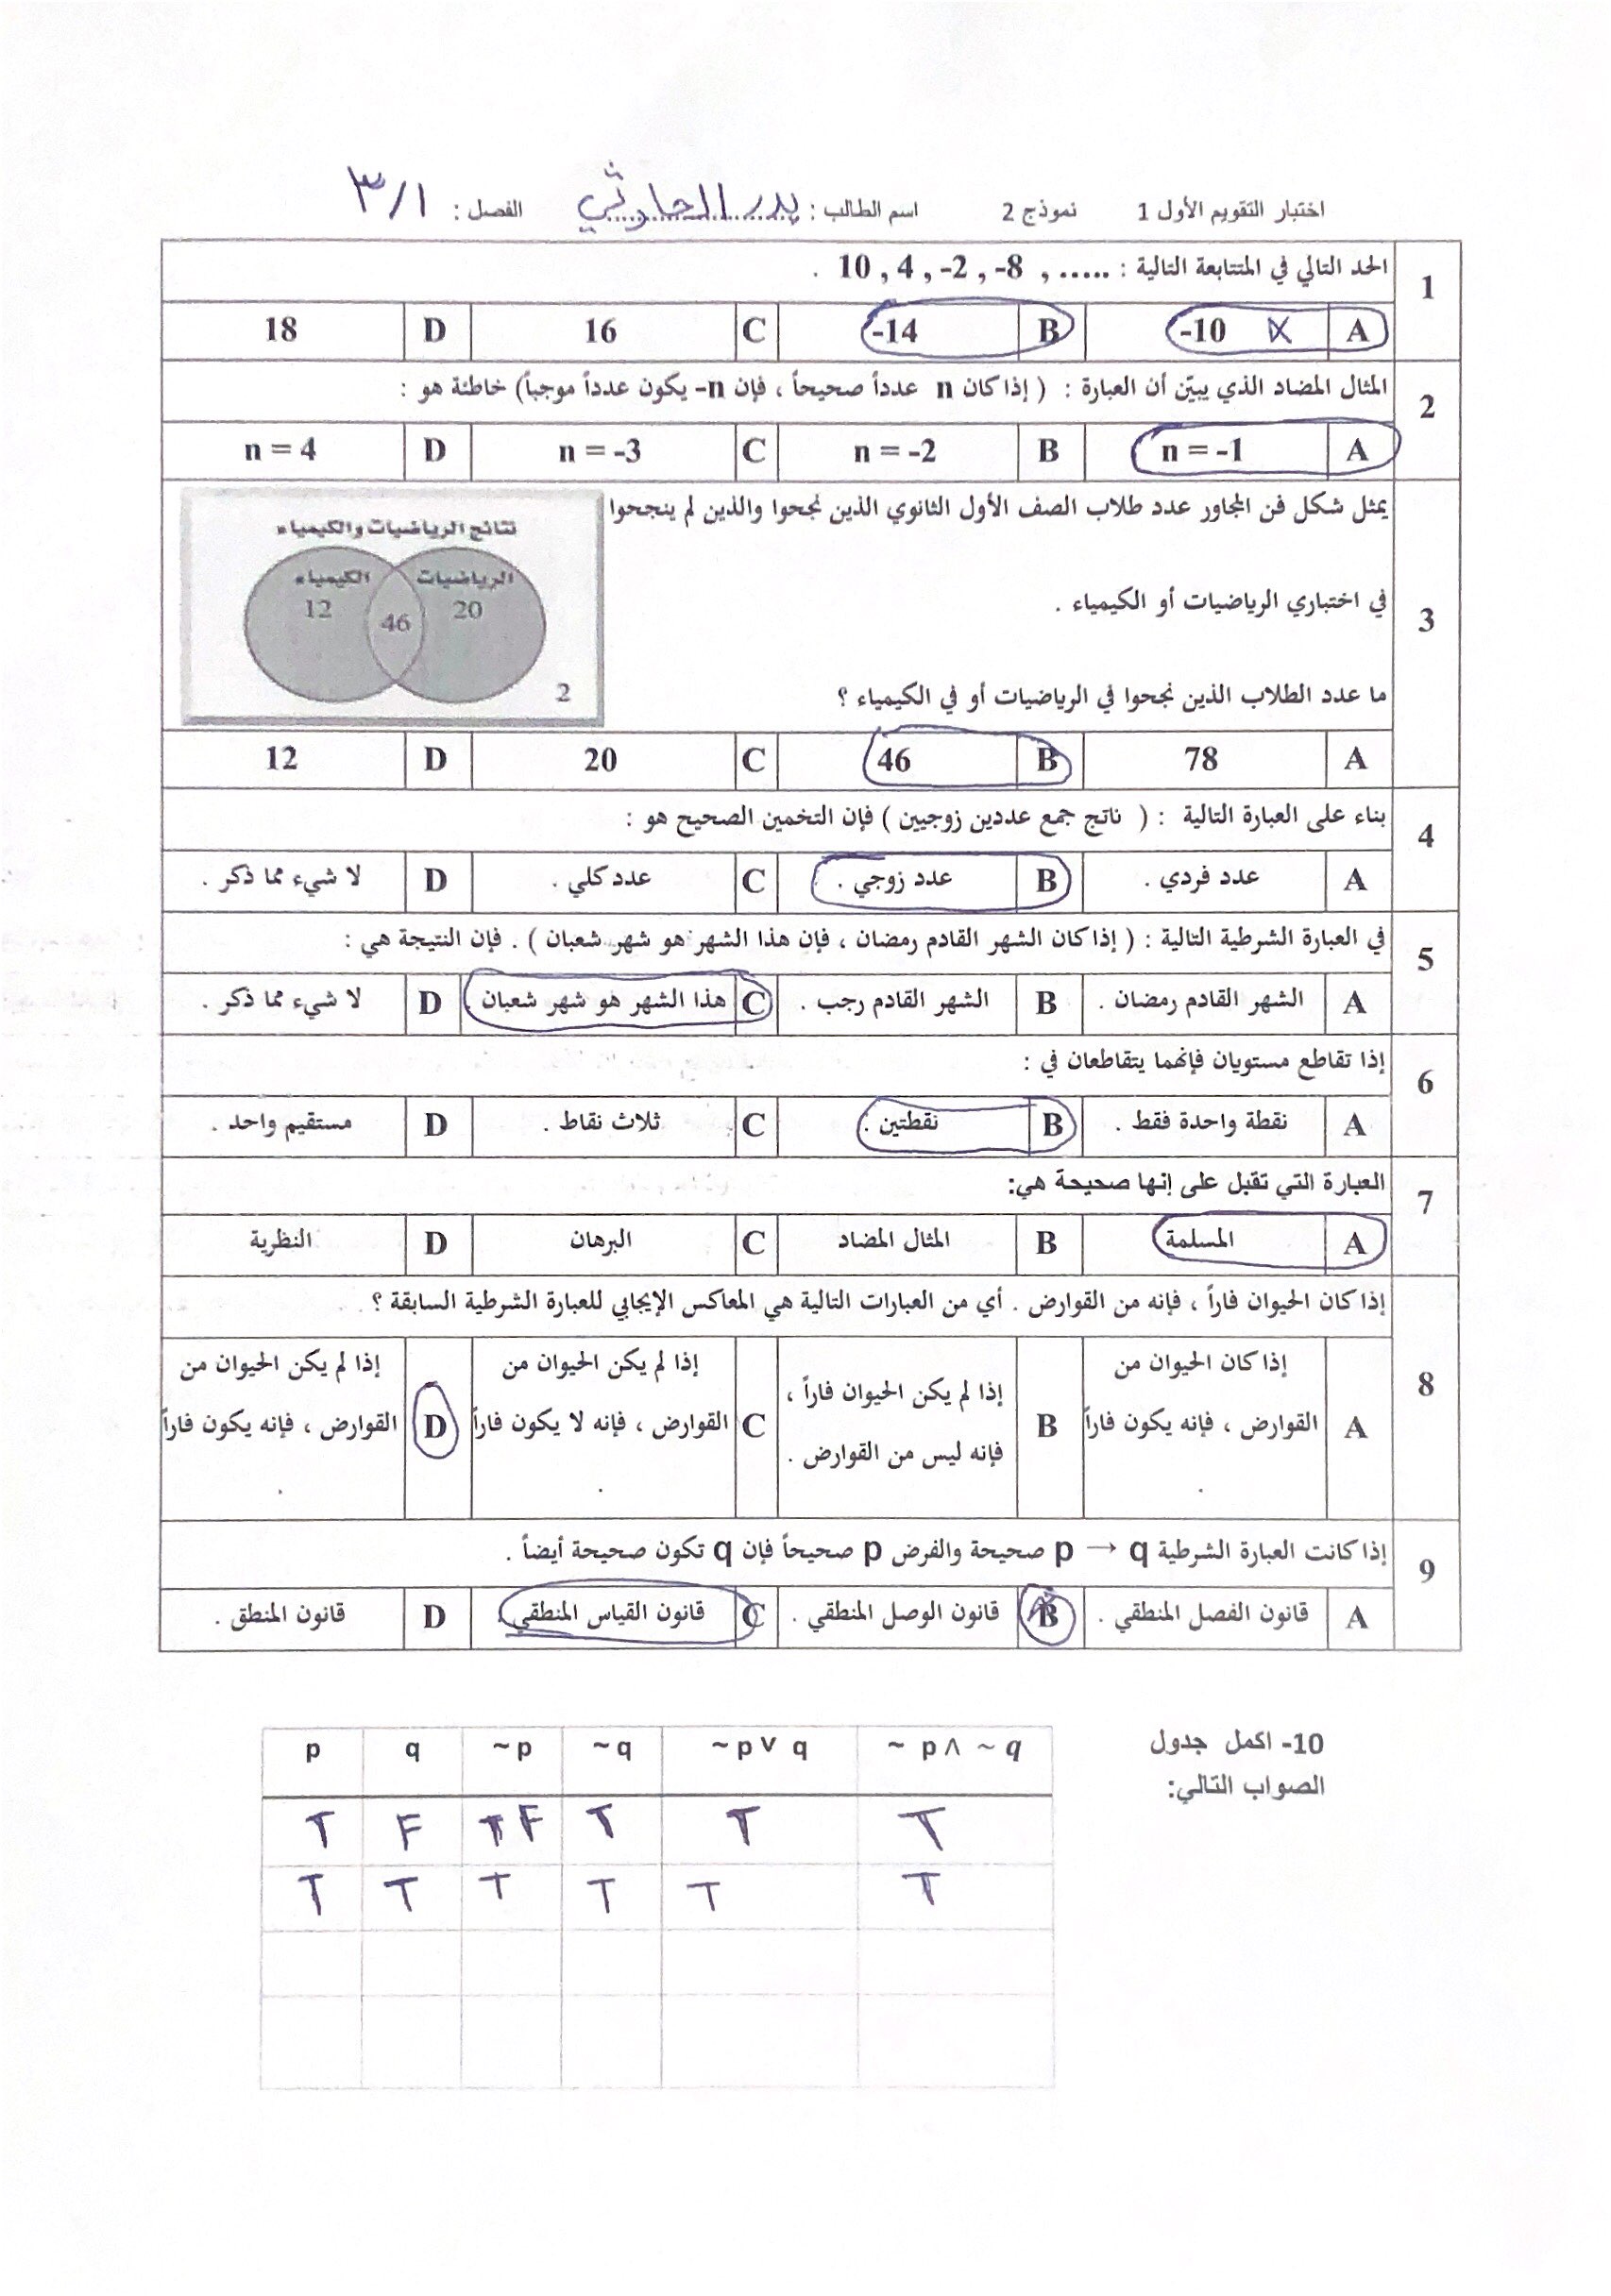 اختبار التقويم الأول 1 نموذج 2 اسم الطالب : بدر الحارثي الفصل : ٣/١
1 الحد التالي في المتتابعة التالية : ..... , 10 , 4 , -2 , -8 .
A -10 X B -14 C 16 D 18
2 المثال المضاد الذي يبيّن أن العبارة : ( إذا كان n عدداً صحيحاً ، فإن n- يكون عدداً موجباً) خاطئة هو :
A n = -1 B n = -2 C n = -3 D n = 4
3 يمثل شكل فن المجاور عدد طلاب الصف الأول الثانوي الذين نجحوا والذين لم ينجحوا
في اختباري الرياضيات أو الكيمياء .
ما عدد الطلاب الذين نجحوا في الرياضيات أو في الكيمياء ؟
نتائج الرياضيات والكيمياء
الرياضيات الكيمياء
20 46 12
2
A 78 B 46 C 20 D 12
4 بناء على العبارة التالية : ( ناتج جمع عددين زوجيين ) فإن التخمين الصحيح هو :
A عدد فردي . B عدد زوجي . C عدد كلي . D لا شيء مما ذكر .
5 في العبارة الشرطية التالية : ( إذا كان الشهر القادم رمضان ، فإن هذا الشهر هو شهر شعبان ) . فإن النتيجة هي :
A الشهر القادم رمضان . B الشهر القادم رجب . C هذا الشهر هو شهر شعبان D لا شيء مما ذكر .
6 إذا تقاطع مستويان فإنهما يتقاطعان في :
A نقطة واحدة فقط . B نقطتين . C ثلاث نقاط . D مستقيم واحد .
7 العبارة التي تقبل على إنها صحيحة هي:
A المسلمة B المثال المضاد C البرهان D النظرية
8 إذا كان الحيوان فاراً ، فإنه من القوارض . أي من العبارات التالية هي المعاكس الإيجابي للعبارة الشرطية السابقة ؟
A إذا كان الحيوان من القوارض ، فإنه يكون فاراً .
B إذا لم يكن الحيوان فاراً ، فإنه ليس من القوارض .
C إذا لم يكن الحيوان من القوارض ، فإنه لا يكون فاراً .
D إذا لم يكن الحيوان من القوارض ، فإنه يكون فاراً .
9 إذا كانت العبارة الشرطية p → q صحيحة والفرض p صحيحاً فإن q تكون صحيحة أيضاً .
A قانون الفصل المنطقي . B قانون الوصل المنطقي . C قانون القياس المنطقي . D قانون المنطق .
10- اكمل جدول
الصواب التالي:
p q ~p ~q ~p∨ q ~ p∧ ~q
T F F T T T
T T T T T T